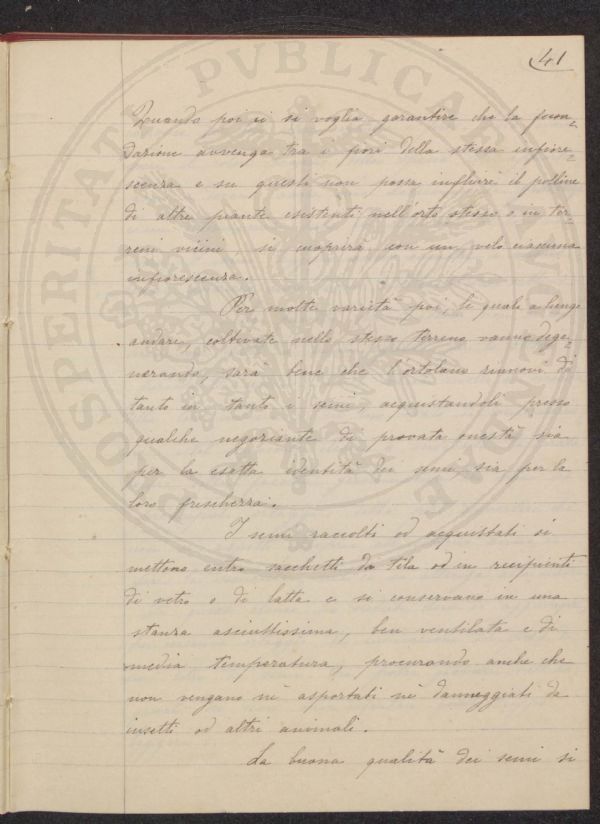 41
Quando poi ci si voglia garantire che la fecon=
dazione avvenga tra i fiori della stessa infiore=
scenza e su questi non possa influire il polline
di altre piante esistenti nell'orto stesso o in ter=
reni vicini, si coprirà con un velo ciascuna
infiorescenza.
Per molte varietà poi, le quali a lungo
andare, coltivate nello stesso terreno vanno dege=
nerando, sarà bene che l'ortolano rinnovi di
tanto in tanto i semi, acquistandoli presso
qualche negoziante di provata onestà sia
per la esatta identità dei semi, sia per la
loro freschezza.
I semi raccolti od acquistati si
mettono entro sacchetti di tela od in recipienti
di vetro o di latta e si conservano in una
stanza asciuttissima, ben ventilata e di
media temperatura, procurando anche che
non vengano nè asportati nè danneggiati da
insetti od altri animali.
La buona qualità dei semi si
PROSPERITATI PVBLICAE AVGENDAE